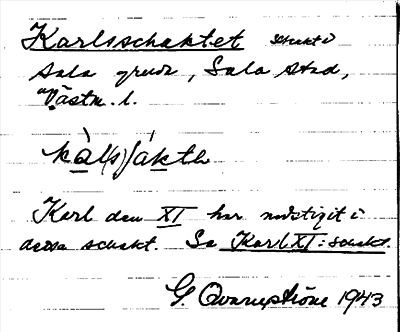 Karlsschaktet schakt i
Sala gruva, Sala stad,
Västm. l.
Karl den XI har nedstigit i
detta schakt. Se Karl XI:s schakt.
G. Qvarnström 1943